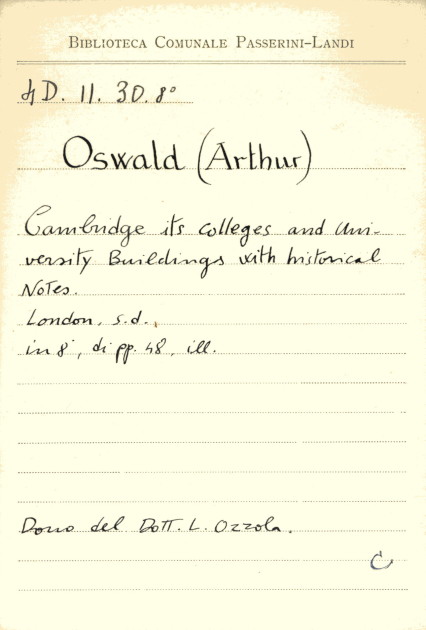 BIBLIOTECA COMUNALE PASSERINI-LANDI
4D. 11. 30. 8°
Oswald (Arthur)
Cambridge its colleges and Uni-
versity Buildings with historical
Notes.
London, s.d.
in 8°, di pp. 48, ill.
Dono del Dott. L. Ozzola.
C